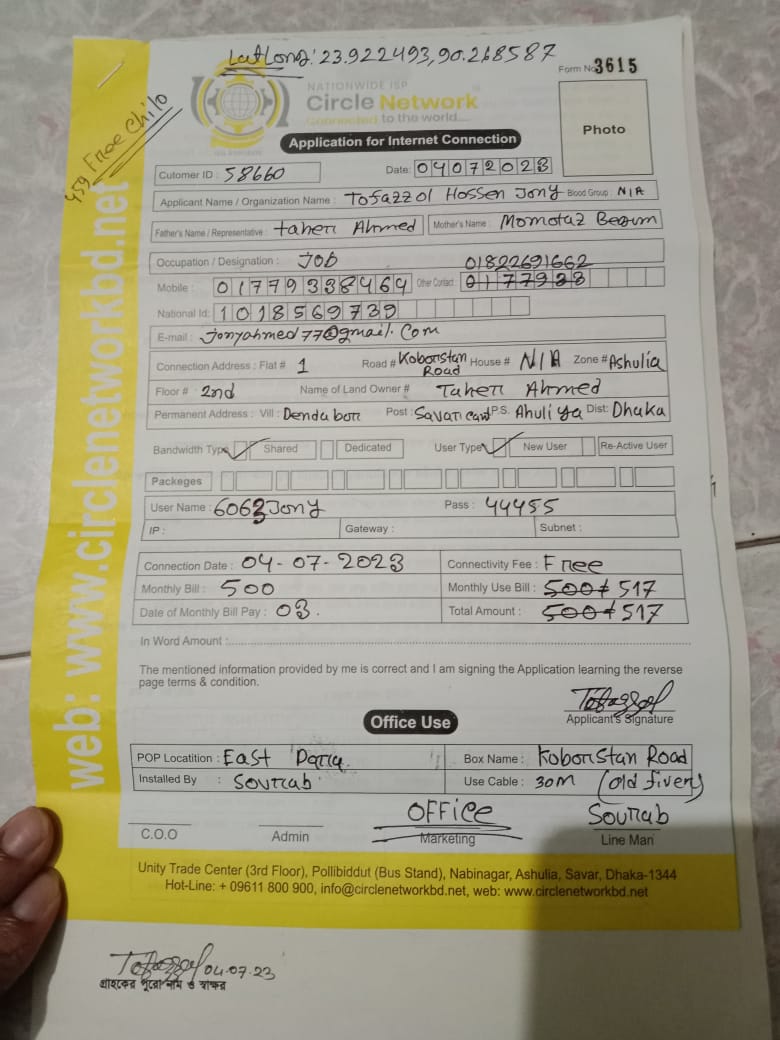 LatLong: 23.922493,90.268587
Form No 3615
459 Free Chilo
NATIONWIDE ISP
Circle Network
Connected to the world....
Photo
Application for Internet Connection
Cutomer ID : 58660
Date: 04072023
Applicant Name / Organization Name : Tofazzol Hossen Jony Blood Group : N/A
Father's Name / Representative : Taherr Ahmed Mother's Name : Momotaz Begum
Occupation / Designation : Job
01822691662
Mobile : 01779338464 Other Contact : 0177933
National Id: 1018569739
E-mail : Jonyahmed77@gmail.Com
Connection Address : Flat # 1 Road # Koborrstan Road House # N/A Zone # Ashulia
Floor # 2nd Name of Land Owner # Taherr Ahmed
Permanent Address : Vill : Dendaborr Post : Savarr cant P.S. Ahuliya Dist: Dhaka
Bandwidth Type Shared Dedicated User Type New User Re-Active User
Packeges
User Name : 6063Jony Pass : 44455
IP : Gateway : Subnet :
Connection Date : 04-07-2023 Connectivity Fee : Free
Monthly Bill : 500 Monthly Use Bill : 500+ 517
Date of Monthly Bill Pay : 03. Total Amount : 500+ 517
In Word Amount :
The mentioned information provided by me is correct and I am signing the Application learning the reverse
page terms & condition.
Tofazzol
Applicant's Signature
Office Use
POP Locatition : East Parra Box Name : Koborrstan Road
Installed By : Sourrab Use Cable : 30M (old fiverr)
OFFice Sourrab
C.O.O Admin Marketing Line Man
Unity Trade Center (3rd Floor), Pollibiddut (Bus Stand), Nabinagar, Ashulia, Savar, Dhaka-1344
Hot-Line: + 09611 800 900, info@circlenetworkbd.net, web: www.circlenetworkbd.net
web: www.circlenetworkbd.net
Tofazzol 04.07.23
গ্রাহকের পুরো নাম ও স্বাক্ষর